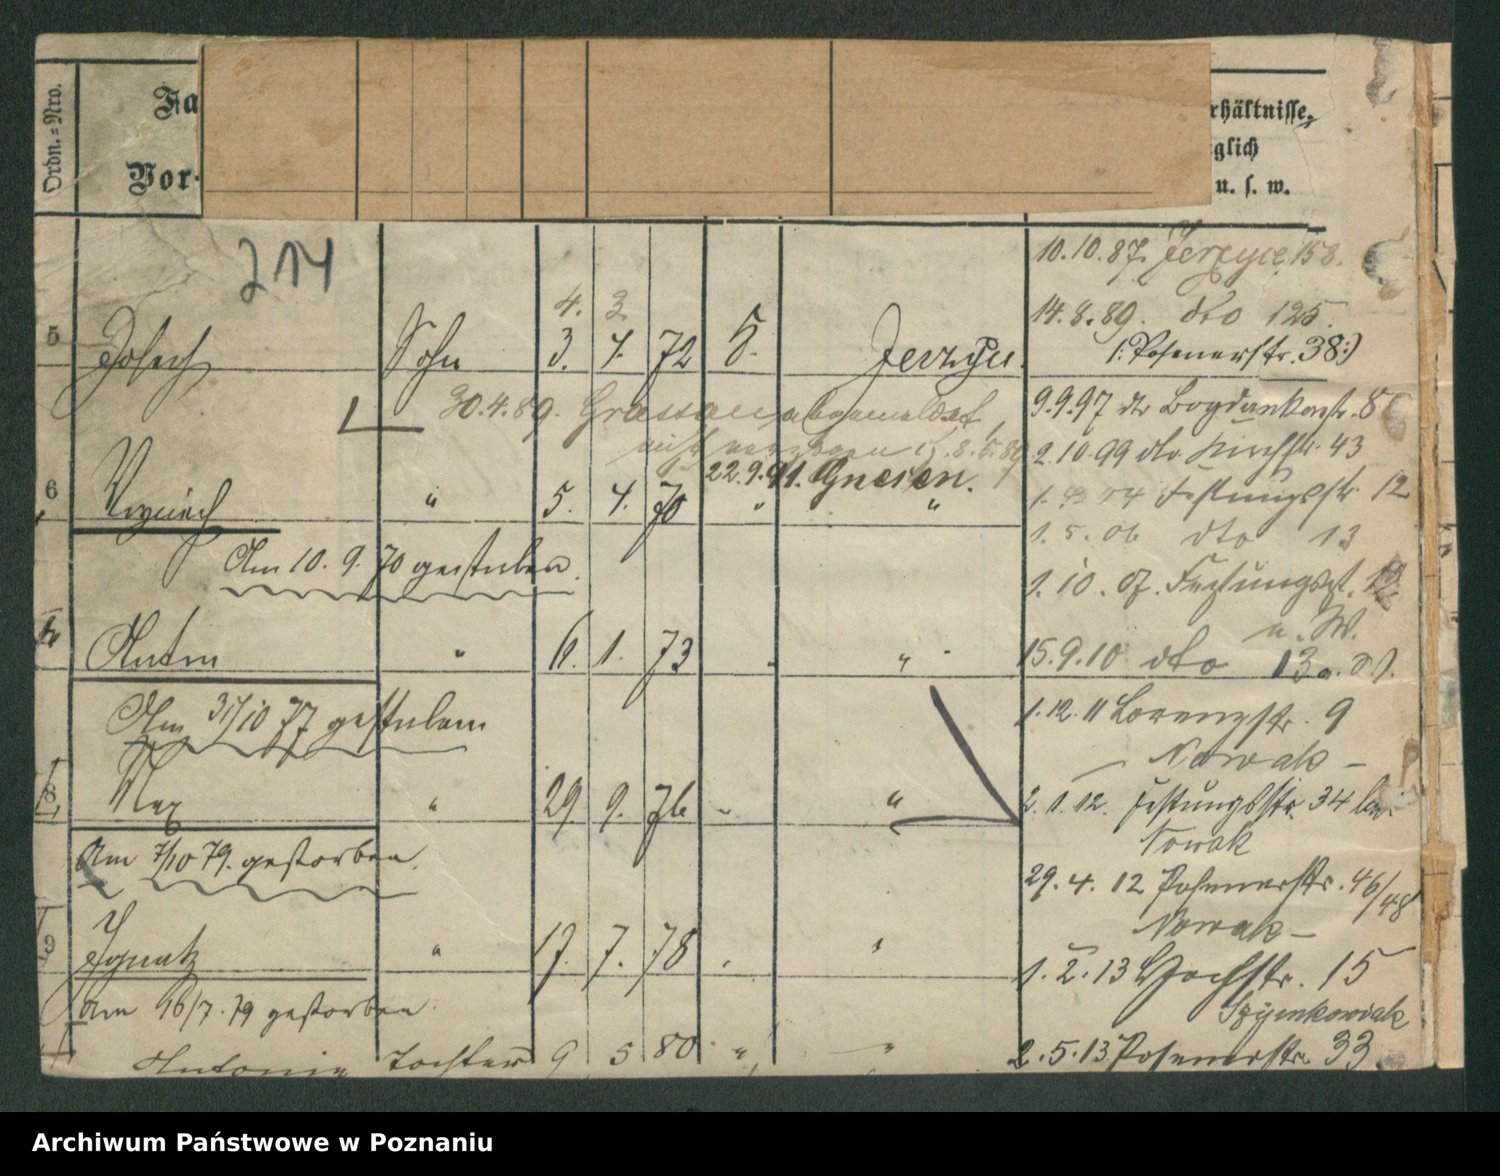 Ordn.=Nro.
Fa
Vor-
rhältnisse,
glich
u. s. w.
214
10.10.87. Jerzyce 158.
14.8.89. dto 125.
(: Posenerstr. 38:)
4. 3
5 Joseph Sohn 3. 4. 72 5. Jerzyce.
30.4.89. abgemeldet,
nicht verzogen 8.5.89
9.9.97 dto Bogdankastr. 8
2.10.99 dto Kirchstr. 43
22.9.91. Gnesen.
6 " 5. 4. 70 " "
Festungsstr. 12
1.5.06 dto 13
Am 10. 9. 70 gestorben.
1.10.07. Festungsst.
u. W.
Anton " 1. 73 " "
15.9.10 dto 13a.
Am 31/10 77 gestorben
1.12.11 Lorenzstr. 9
Nowak –
8 Max " 29 9. 76 " "
2.1.12. Festungsstr. 34 bei
Nowak
Am 7/10 79. gestorben.
29.4.12 Posenerstr. 46/48
Nowak –
9 Ignatz " 17. 7. 78 " "
1.2.13 Hochstr. 15
Am 16/7. 79 gestorben.
Szymkowiak
Antonie Tochter 9 5 80 " "
2.5.13 Posenerstr. 33.
Archiwum Państwowe w Poznaniu